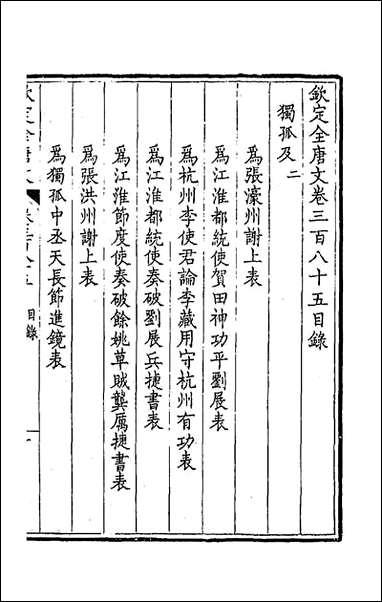 欽定全唐文卷三百八十五目錄
獨孤及二
為張濠州謝上表
為江淮都統使賀田神功平劉展表
為杭州李使君論李藏用守杭州有功表
為江淮都統使奏破劉展兵捷書表
為江淮節度使奏破餘姚草賊龔厲捷書表
為張洪州謝上表
為獨孤中丞天長節進鏡表
欽定全唐文 卷三百八十五 目錄 一